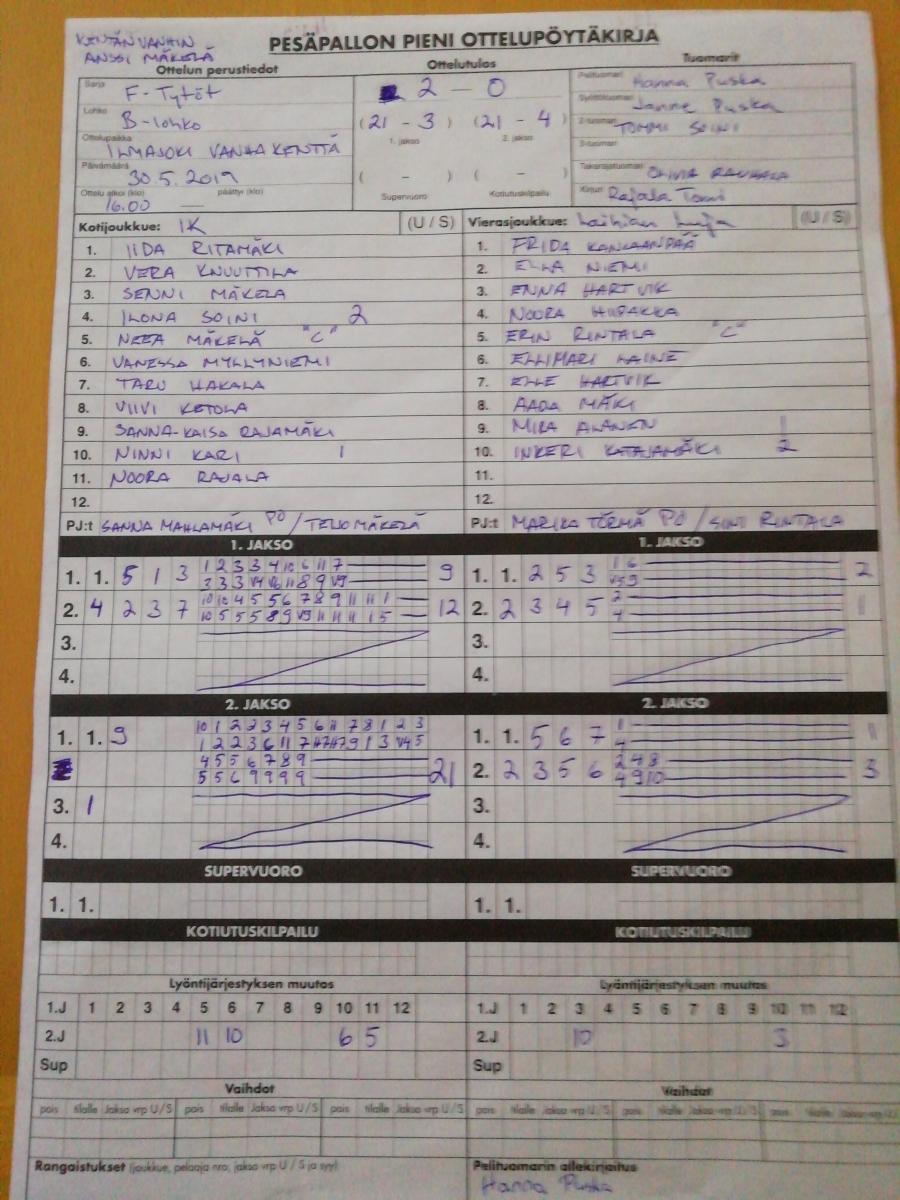 KENTÄNVANHIN
ANSSI MÄKELÄ
PESÄPALLON PIENI OTTELUPÖYTÄKIRJA
Ottelun perustiedot Ottelutulos Tuomarit
Sarja F-Tytöt
Lohko B-lohko
Ottelupaikka ILMAJOKI VANHA KENTTÄ
Päivämäärä 30.5.2019
Ottelu alkoi (klo) 16.00 päättyi (klo) —
2 - 0
(21 - 3) (21 - 4)
1. jakso 2. jakso
( - ) ( - )
Supervuoro Kotiutuskilpailu
Pelituomari Hanna Puska
Syöttötuomari Janne Puska
2-tuomari TOMMI SOINI
3-tuomari
Takarajatuomari OLIVIA RAUHALA
Kirjuri Rajala Tomi
Kotijoukkue: IK (U / S)
1. IIDA RITAMÄKI
2. VERA KNUUTTILA
3. SENNI MÄKELÄ
4. ILONA SOINI 2
5. NEEA MÄKELÄ "C"
6. VANESSA MYLLYNIEMI
7. TARU HAKALA
8. VIIVI KETOLA
9. SANNA-KAISA RAJAMÄKI
10. NINNI KARI 1
11. NOORA RAJALA
12.
PJ:t SANNA MAHLAMÄKI PO / TEIJO MÄKELÄ
Vierasjoukkue: Laihian Luja (U / S)
1. FRIDA KANKAANPÄÄ
2. ELLA NIEMI
3. ENNA HARTVIK
4. NOORA HIIPAKKA
5. ERIN RINTALA "C"
6. ELLIMARI LAINE
7. ELLE HARTVIK
8. AADA MÄKI
9. MIRA ALANEN 1
10. INKERI KATAJAMÄKI 2
11.
12.
PJ:t MARIKA TÖRMÄ PO / SINI RINTALA
1. JAKSO
1. 1. 5 1 3 1 2 3 3 4 10 6 11 7 9
2 3 3 V4 V6 11 8 9 V9
2. 4 2 3 7 10 10 4 5 5 6 7 8 9 11 11 1 12
10 5 5 5 8 9 V9 11 11 11 1 5
3.
4.
1. JAKSO
1. 1. 2 5 3 1 6 2
V5 9
2. 2 3 4 5 2 1
4
3.
4.
2. JAKSO
1. 1. 9 10 1 2 2 3 4 5 6 11 7 8 1 2 3
1 2 2 3 6 11 7 V7 V7 9 1 3 V4 5
4 5 5 6 7 8 9 21
5 5 6 9 9 9 9
3. 1
4.
2. JAKSO
1. 1. 5 6 7 1 1
4
2. 2 3 5 6 2 4 8 3
4 9 10
3.
4.
SUPERVUORO SUPERVUORO
1. 1. 1. 1.
KOTIUTUSKILPAILU KOTIUTUSKILPAILU
Lyöntijärjestyksen muutos Lyöntijärjestyksen muutos
1.J 1 2 3 4 5 6 7 8 9 10 11 12 1.J 1 2 3 4 5 6 7 8 9 10 11 12
2.J 11 10 6 5 2.J 10 3
Sup Sup
Vaihdot Vaihdot
pois tilalle Jakso vrp U / S pois tilalle Jakso vrp U / S pois tilalle Jakso vrp U / S pois tilalle Jakso vrp U / S pois tilalle Jakso vrp U / S pois tilalle Jakso vrp U / S
Rangaistukset (joukkue, pelaaja nro, jakso vrp U / S ja syy) Pelituomarin allekirjoitus
Hanna Puska